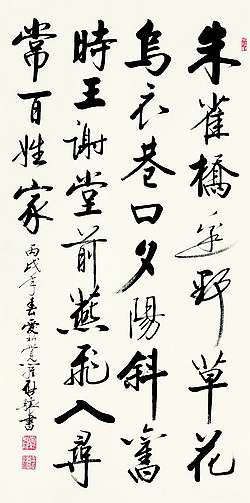 朱雀橋邊野草花
烏衣巷口夕陽斜舊
時王謝堂前燕飛入尋
常百姓家
丙戌年春愛新覺羅啟驤書